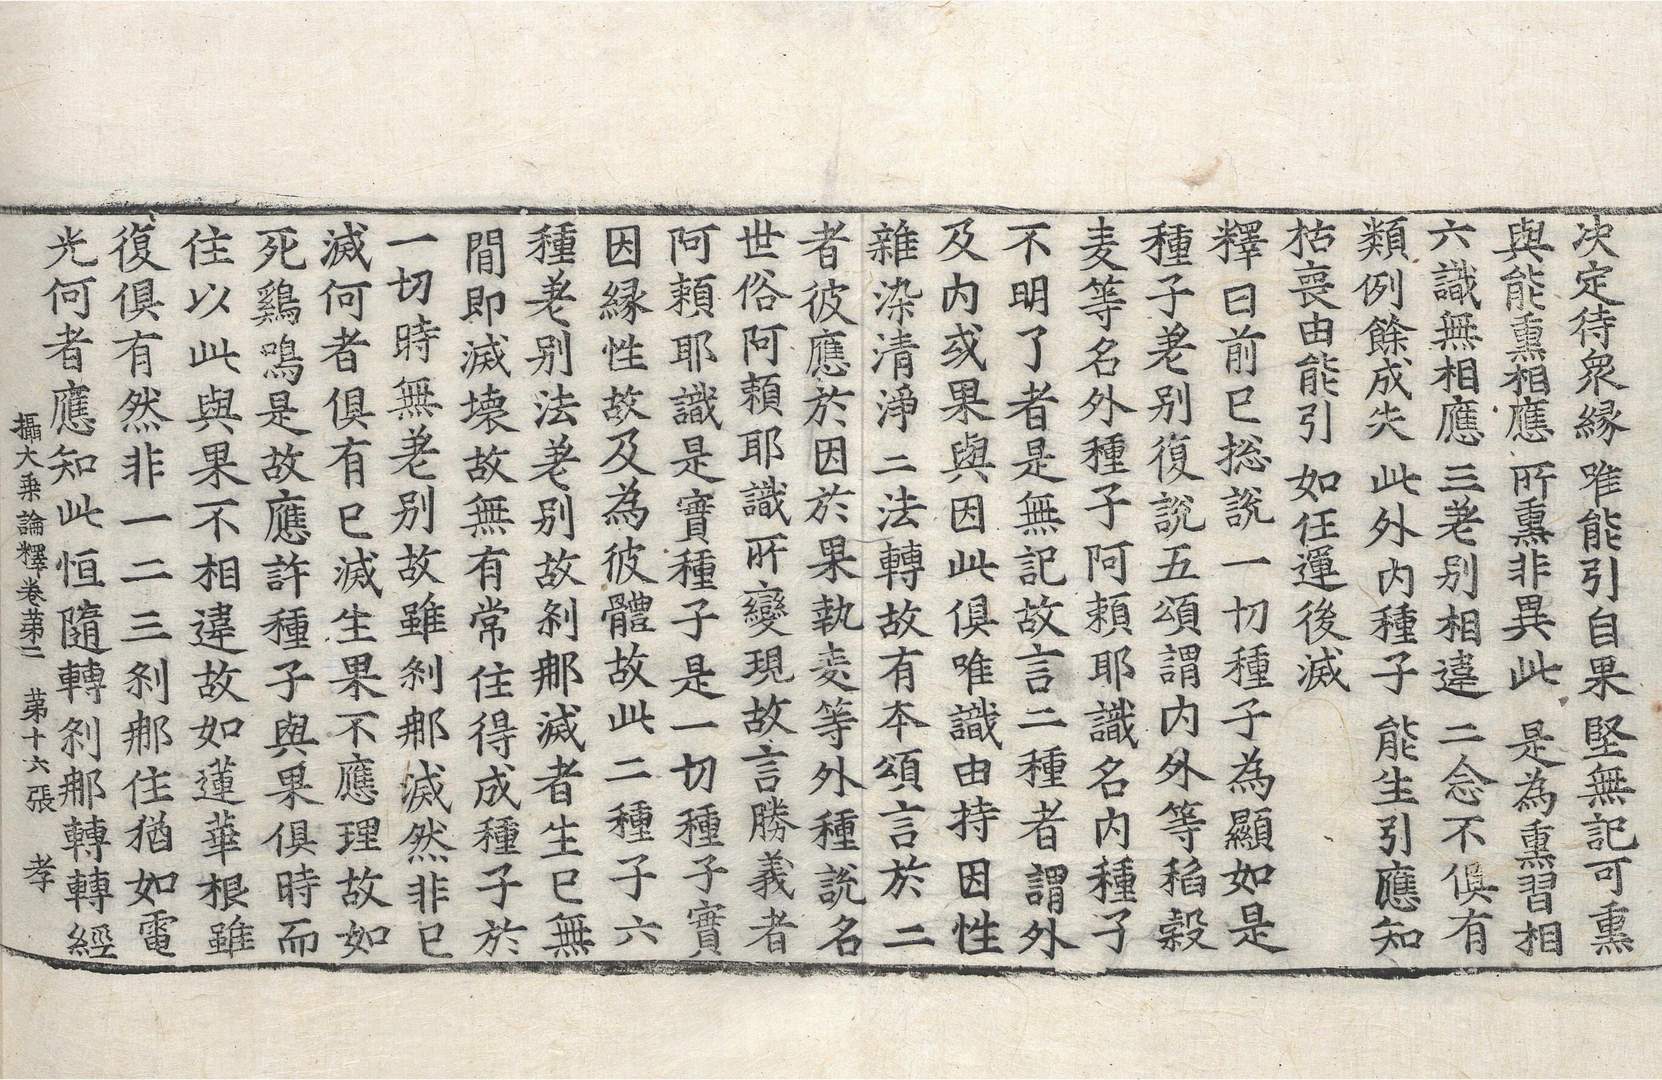 決定待衆縁 唯能引自果 堅無記可熏
與能熏相應 所熏非異此 是為熏習相
六識無相應 三差別相違 二念不俱有
類例餘成失 此外內種子 能生引應知
枯喪由能引 如任運後滅
釋曰前已捴說一切種子為顯如是
種子差別復說五頌謂內外等稻穀
麦等名外種子阿賴耶識名內種子
不明了者是無記故言二種者謂外
及內或果與因此俱唯識由持因性
雜染清淨二法轉故有本頌言於二
者彼應於因於果執麦等外種說名
世俗阿賴耶識所變現故言勝義者
阿賴耶識是實種子是一切種子實
因縁性故及為彼體故此二種子六
種差別法差別故刹那滅者生已無
間即滅壞故無有常住得成種子於
一切時無差別故雖刹那滅然非已
滅何者俱有已滅生果不應理故如
死鷄鳴是故應許種子與果俱時而
住以此與果不相違故如蓮華根雖
復俱有然非一二三刹那住猶如電
光何者應知此恒隨轉刹那轉轉經
攝大乘論釋卷苐二 苐十六張 孝